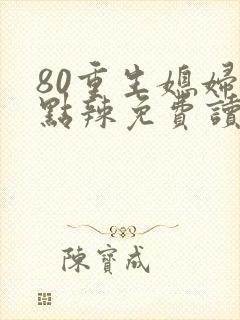 80重生媳婦
點辣免費讀
陳寶成